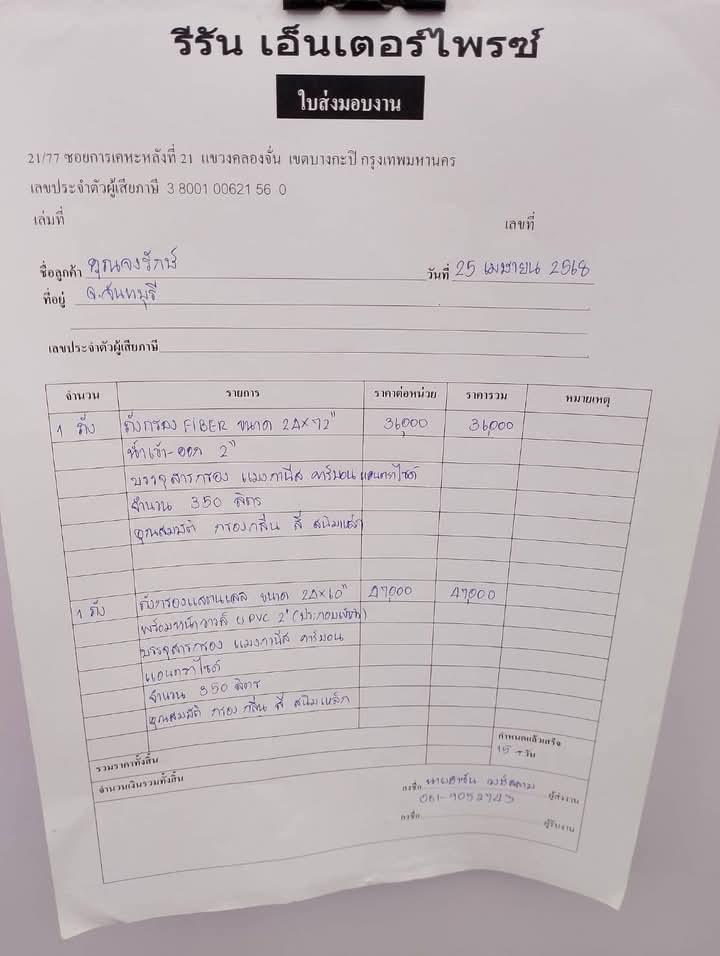 รีรัน เอ็นเตอร์ไพรซ์
ใบส่งมอบงาน
21/77 ซอยการเคหะหลังที่ 21 แขวงคลองจั่น เขตบางกะปิ กรุงเทพมหานคร
เลขประจำตัวผู้เสียภาษี 3 8001 00621 56 0
เล่มที่ เลขที่
ชื่อลูกค้า คุณจงรักษ์ วันที่ 25 เมษายน 2568
ที่อยู่ จ.จันทบุรี
เลขประจำตัวผู้เสียภาษี
จำนวน รายการ ราคาต่อหน่วย ราคารวม หมายเหตุ
1 ถัง ถังกรอง FIBER ขนาด 24×72" 36,000 36,000
น้ำเข้า-ออก 2"
บรรจุสารกรอง แมงกานีส คาร์บอน แอนทราไซต์
จำนวน 350 ลิตร
คุณสมบัติ กรองกลิ่น สี สนิมเหล็ก
1 ถัง ถังกรองแสตนเลส ขนาด 24×60" 47,000 47,000
พร้อมหน้าวาวล์ UPVC 2"
บรรจุสารกรอง แมงกานีส คาร์บอน
แอนทราไซต์
จำนวน 350 ลิตร
คุณสมบัติ กรอง กลิ่น สี สนิมเหล็ก
รวมราคาทั้งสิ้น กำหนดแล้วเสร็จ
15 วัน
จำนวนเงินรวมทั้งสิ้น
ลงชื่อ ผู้ส่งงาน
061-9052743
ลงชื่อ ผู้รับงาน